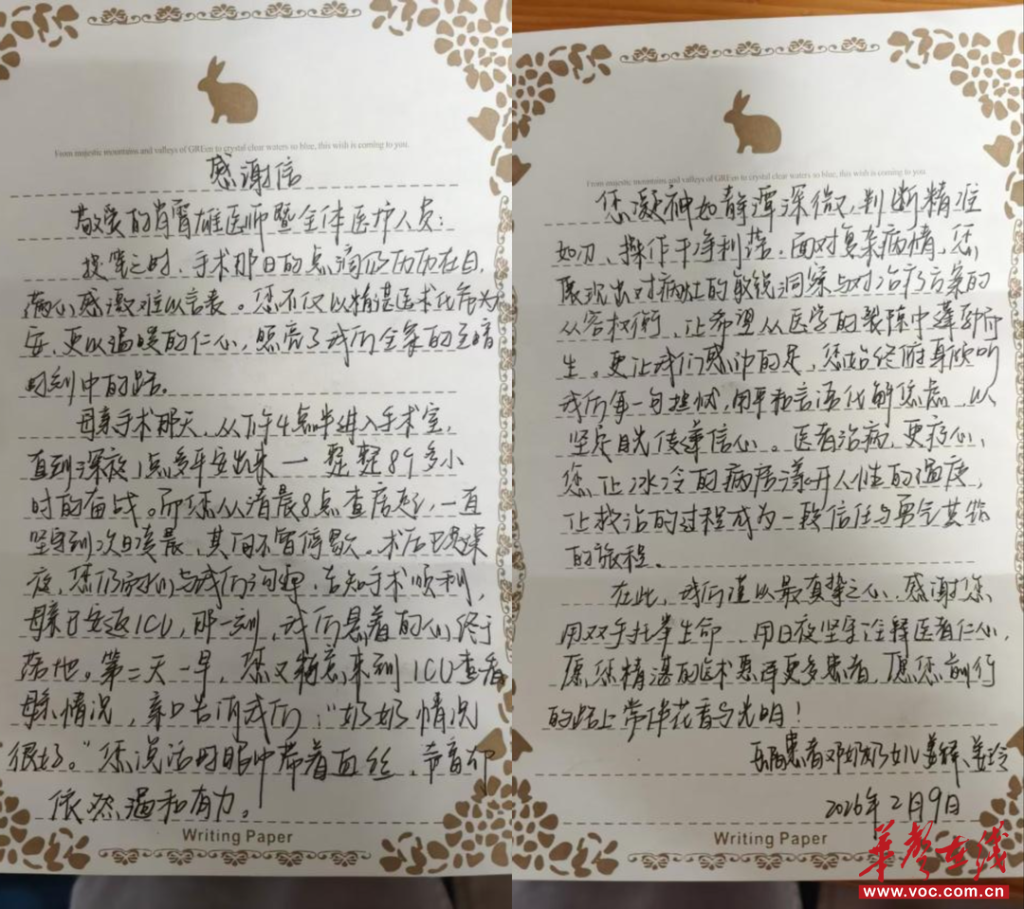 From majestic mountains and valleys of GREen to crystal clear waters so blue, this wish is coming to you.
感谢信
敬爱的肖霄雄医师暨全体医护人员：
提笔之时、手术那日的点滴仍历历在目，
满心感激难以言表。您不仅以精湛医术化危为
安，更以温暖的仁心，照亮了我们全家的至暗
时刻中的路。
母亲手术那天，从下午4点半进入手术室，
直到深夜1点多平安出来一整整8、9多小
时的奋战。而您从清晨8点查房起，一直
坚守到次日凌晨，其间不曾停歇。术后已是深
夜，您仍与我们沟通，告知手术顺利，
母亲已安返ICU，那一刻，我们悬着的心终于
落地。第二天一早，您又特意来到ICU查看
母亲情况，亲口告诉我们："奶奶情况
很好。"您说话时眼中带着血丝，声音却
依然温和有力。
Writing Paper
From majestic mountains and valleys of GREen to crystal clear waters so blue, this wish is coming to you.
您凝神如静潭深微，判断精准
如刀、操作干净利落。面对复杂病情，您
展现出对病灶的敏锐洞察与对治疗方案的
从容权衡，让希望从医学的裂隙中蓬勃而
生。更让我们感动的是，您始终俯身倾听
我们每一句担忧，用平和言语化解焦虑，以
坚定目光传递信心。医者治病，更疗心，
您让冰冷的病房漾开人性的温度，
让救治的过程成为一段信任与勇气共筑
的旅程。
在此，我们谨以最真挚之心，感谢您
用双手托举生命、用日夜坚守诠释医者仁心，
愿您精湛的医术惠泽更多患者，愿您前行
的路上常伴花香与光明！
患者邓奶奶女儿姜辉、姜玲
2026年2月9日
Writing Paper
华声在线
www.voc.com.cn